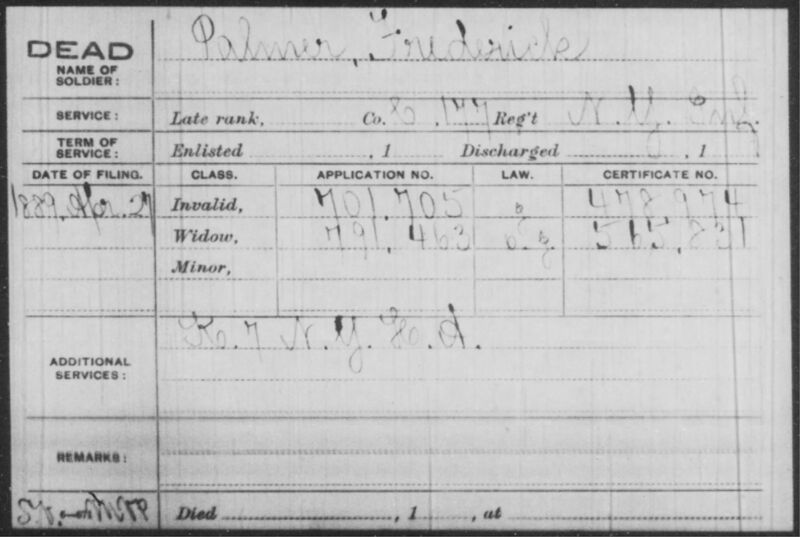 DEAD
NAME OF SOLDIER: Palmer, Frederick
SERVICE: Late rank, Co. C, 177 Reg't N. Y. Inf.
TERM OF SERVICE: Enlisted , 1 Discharged , 1
DATE OF FILING. CLASS. APPLICATION NO. LAW. CERTIFICATE NO.
1889, Apr. 27 Invalid, 701.705 g 478.974
Widow, 791.463 o.g 565.831
Minor,
ADDITIONAL SERVICES: K. 7 N. Y. H. A.
REMARKS:
Died , 1 , at